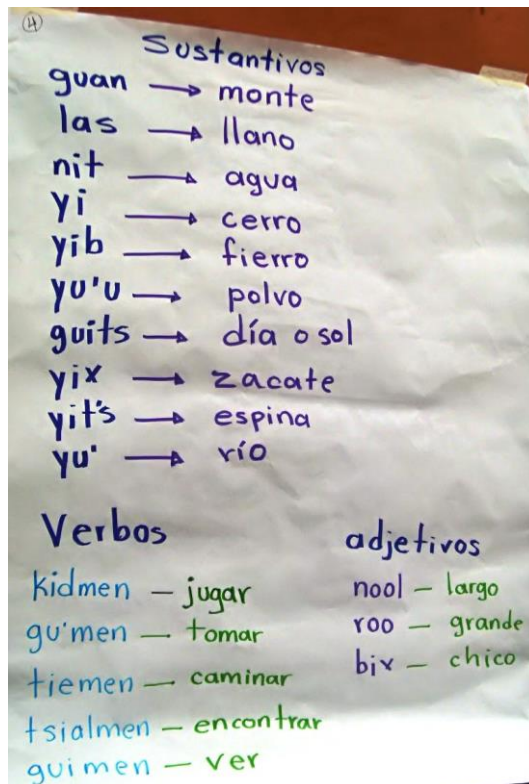 4
Sustantivos
guan → monte
las → llano
nit → agua
yi → cerro
yib → fierro
yu'u → polvo
guits → día o sol
yix → zacate
yit's → espina
yu' → río
Verbos
kidmen – jugar
gu'men – tomar
tiemen – caminar
tsialmen – encontrar
guimen – ver
adjetivos
nool – largo
roo – grande
bix – chico